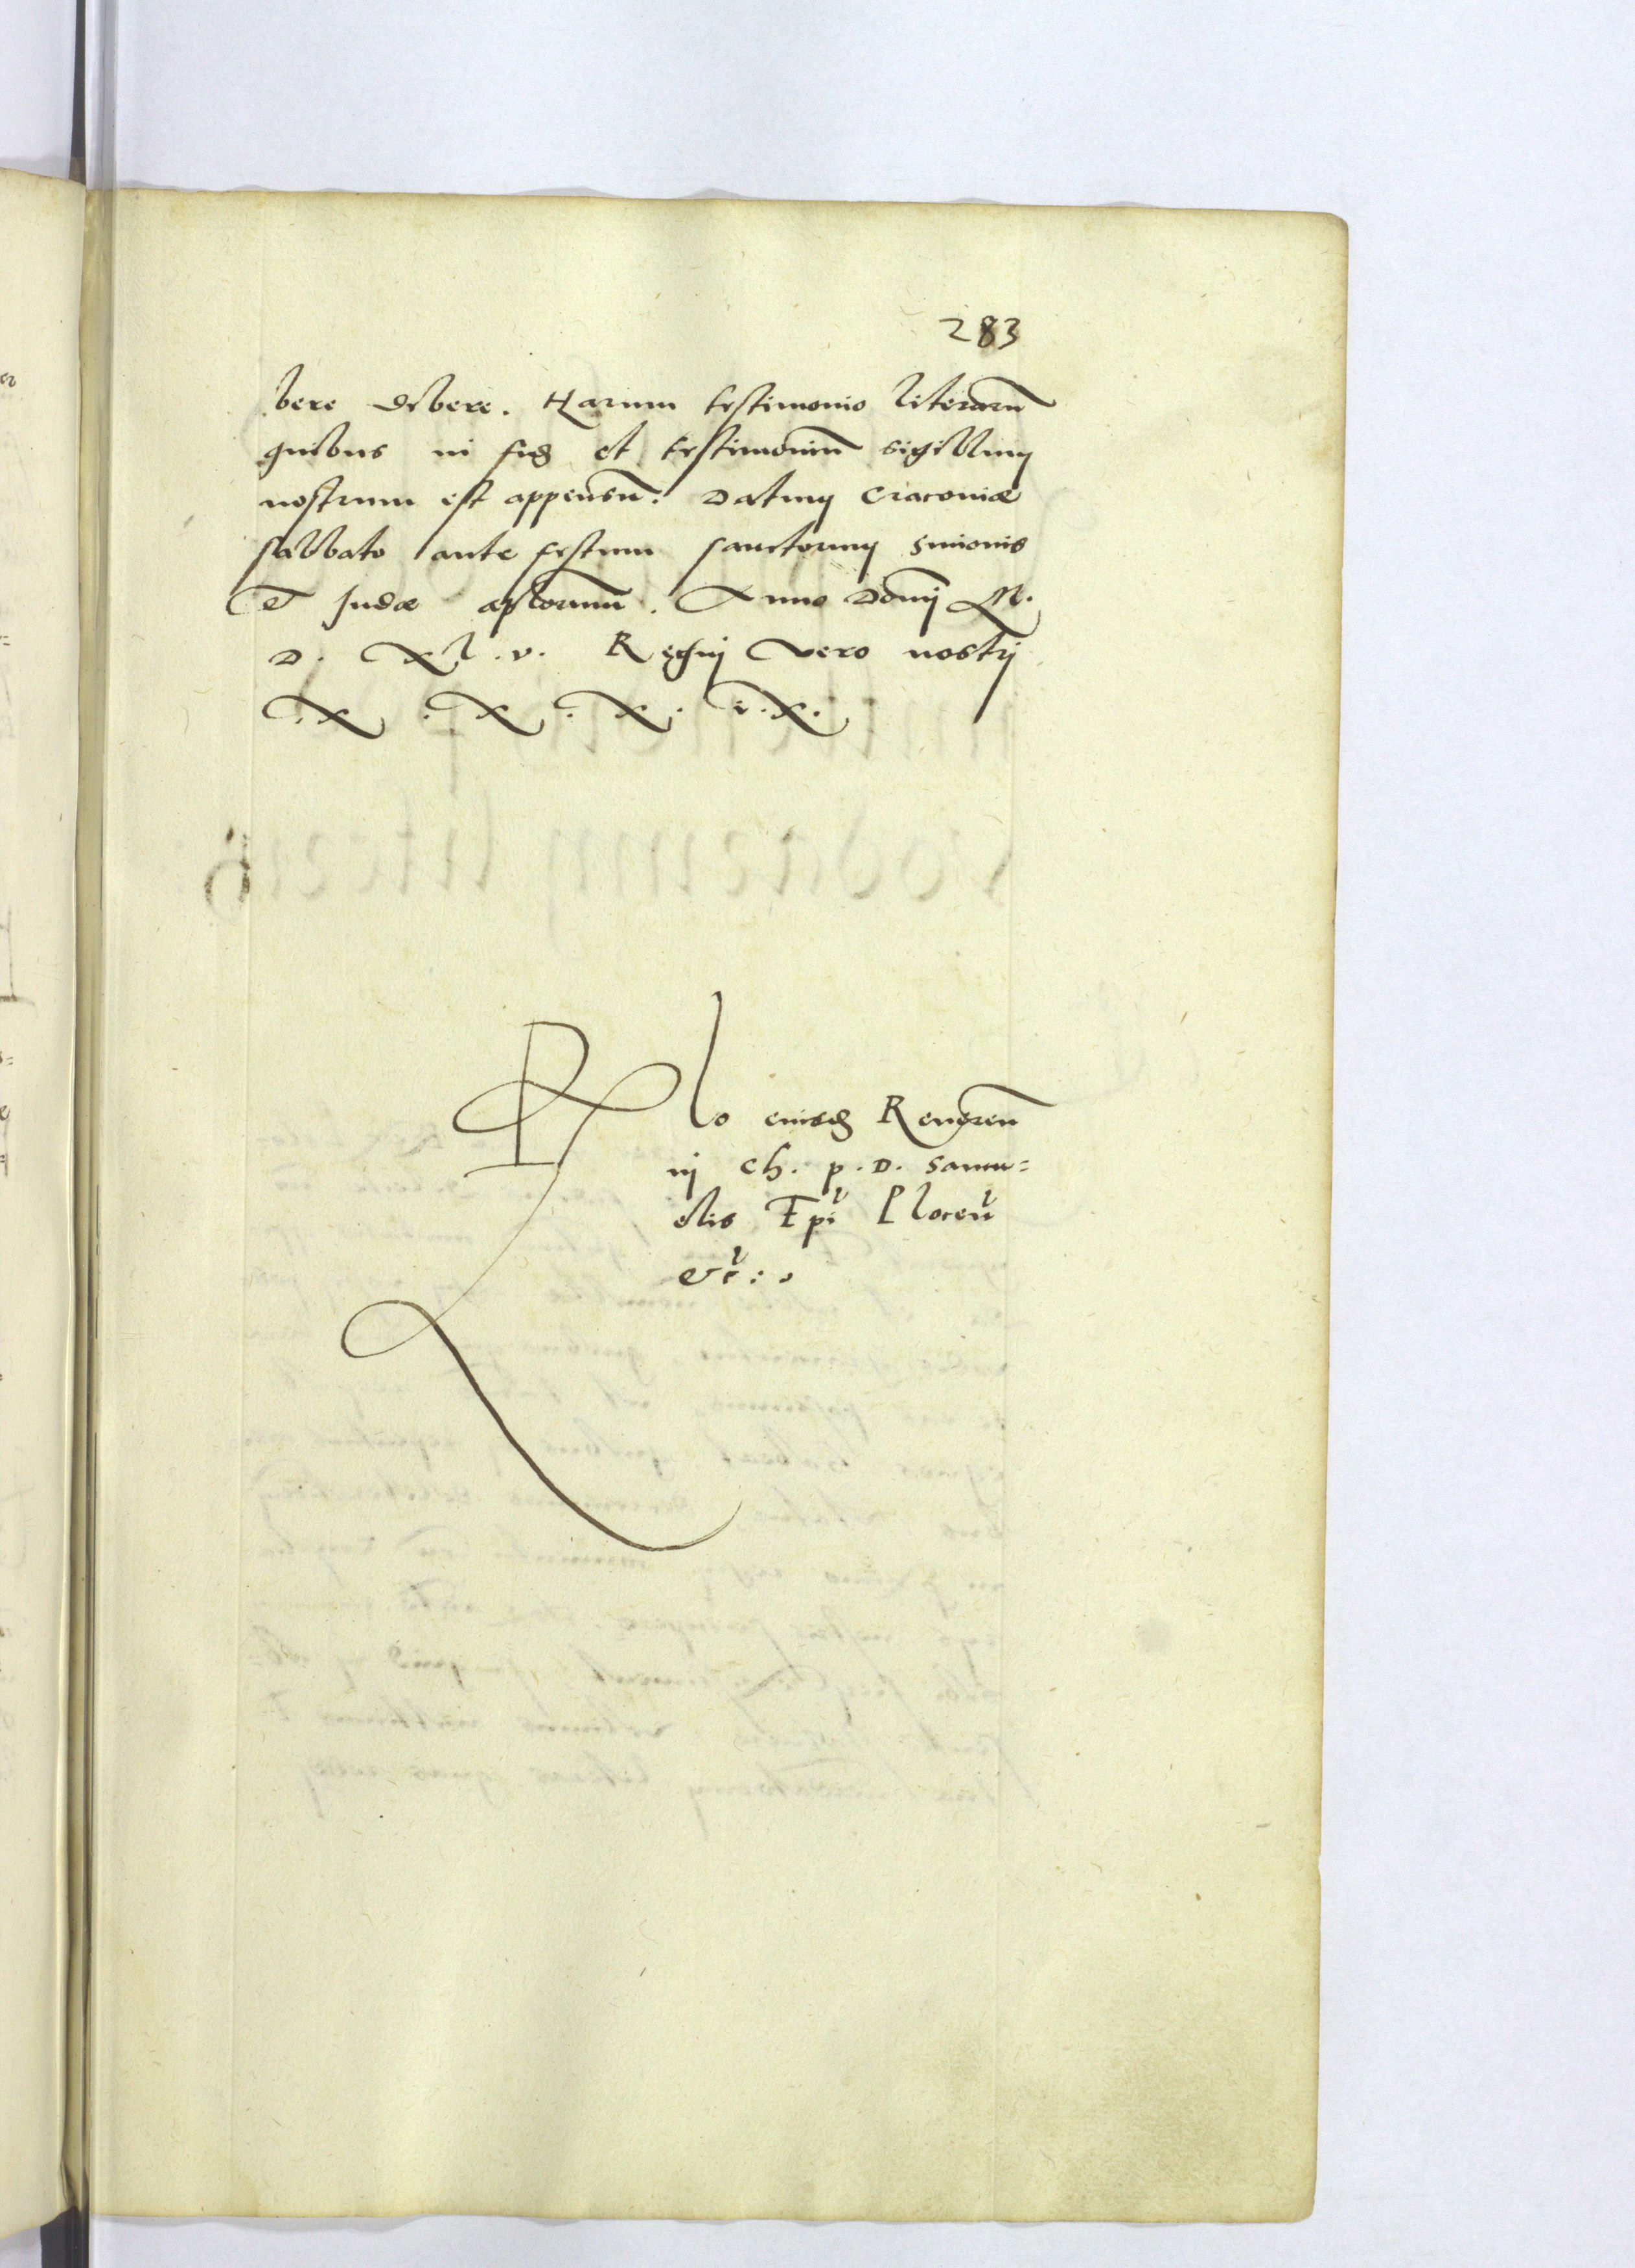 283
bere debere. Harum testimonio literarū
quibus in fidē et testimoniū sigillum
nostrum est appensū. Datum Cracoviæ
sabbato ante festum sanctorum Simonis
et Judæ aplorum. Anno Domī M.
D. Xl. v. Regni vero nostri
.X .X .X. i.X.
Rlo eiusdē Reveren
ni Ch. p. D. Samu=
elis Epi Plocen
etc: .